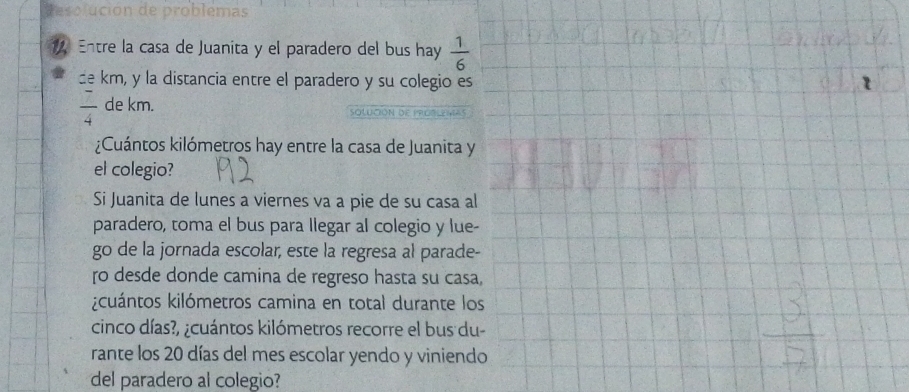 Resolución de problemas
12 Entre la casa de Juanita y el paradero del bus hay 1/6
de km, y la distancia entre el paradero y su colegio es
7/4 de km.
SOLUCIÓN DE PROBLEMAS
¿Cuántos kilómetros hay entre la casa de Juanita y
el colegio?
Si Juanita de lunes a viernes va a pie de su casa al
paradero, toma el bus para llegar al colegio y lue-
go de la jornada escolar, este la regresa al parade-
ro desde donde camina de regreso hasta su casa,
¿cuántos kilómetros camina en total durante los
cinco días?, ¿cuántos kilómetros recorre el bus du-
rante los 20 días del mes escolar yendo y viniendo
del paradero al colegio?